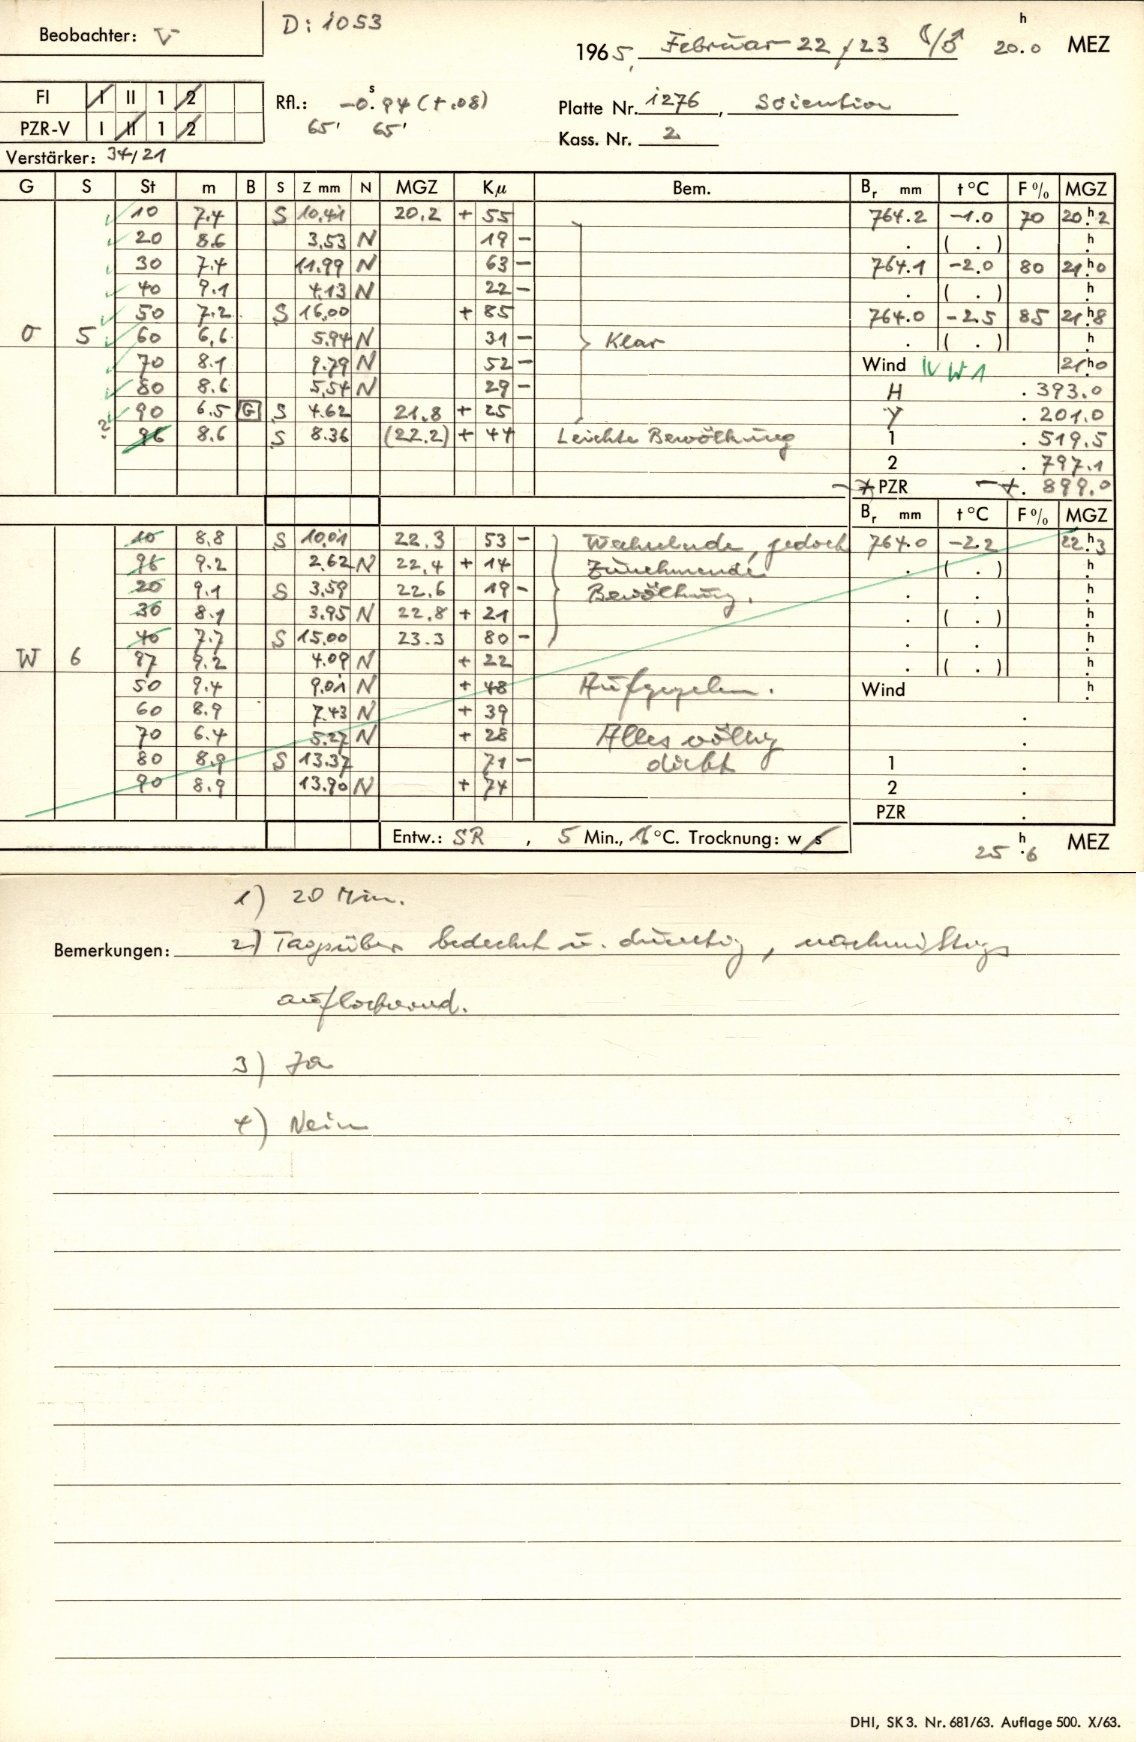 Beobachter: V
D: 1053
1965, Februar 22/23 ☾/♂ 20.0 h MEZ
FI I II 1 2
PZR-V I II 1 2
Rfl.: -0.s94 (+.08)
65' 65'
Platte Nr. 1276, Scientia
Kass. Nr. 2
Verstärker: 34/21
G S St m B S Z mm N MGZ Kμ Bem. Br mm t °C F % MGZ
10 7.4 S 10,41 20.2 + 55 764.2 -1.0 70 20.h2
20 8.6 3,53 N 19 - . ( . ) h
30 7.4 11.99 N 63 - 764.1 -2.0 80 21.h0
40 9.1 4.13 N 22 - . ( . ) h
50 7.2 S 16,00 + 85 764.0 -2.5 85 21.h8
O 5 60 6,6 5.94 N 31 - Klar . ( . ) h
70 8.1 9.79 N 52 - Wind IV W 1 21.h0
80 8.6 5,54 N 29 - H . 393.0
90 6.5 G S 4.62 21,8 + 25 Y . 201.0
? 96 8.6 S 8.36 (22.2) + 44 Leichte Bewölkung 1 . 519.5
2 . 797.1
PZR . 899.0
Br mm t °C F % MGZ
10 8.8 S 10,01 22.3 53 - Wechselnde, jedoch 764.0 -2.2 22.h3
96 9.2 2,62 N 22,4 + 14 zunehmende . ( . ) h
20 9.1 S 3,59 22.6 19 - Bewölkung. . . h
30 8.1 3.95 N 22,8 + 21 . ( . ) h
40 7.7 S 15.00 23.3 80 - . . h
W 6 97 9.2 4.09 N + 22 . ( . ) h
50 9.4 9.01 N + 48 Aufgegeben. Wind h
60 8.9 7.43 N + 39 .
70 6.4 5.27 N + 28 Alles völlig .
80 8.9 S 13.37 71 - dicht 1 .
90 8.9 13.90 N + 74 2 .
PZR .
Entw.: SR , 5 Min., 16 °C. Trocknung: w s
25 .h6 MEZ
1) 20 Min.
Bemerkungen: 2) Tagsüber bedeckt u. dunstig, nachmittags
auflockernd.
3) Ja
4) Nein
DHI, SK 3. Nr. 681/63. Auflage 500. X/63.